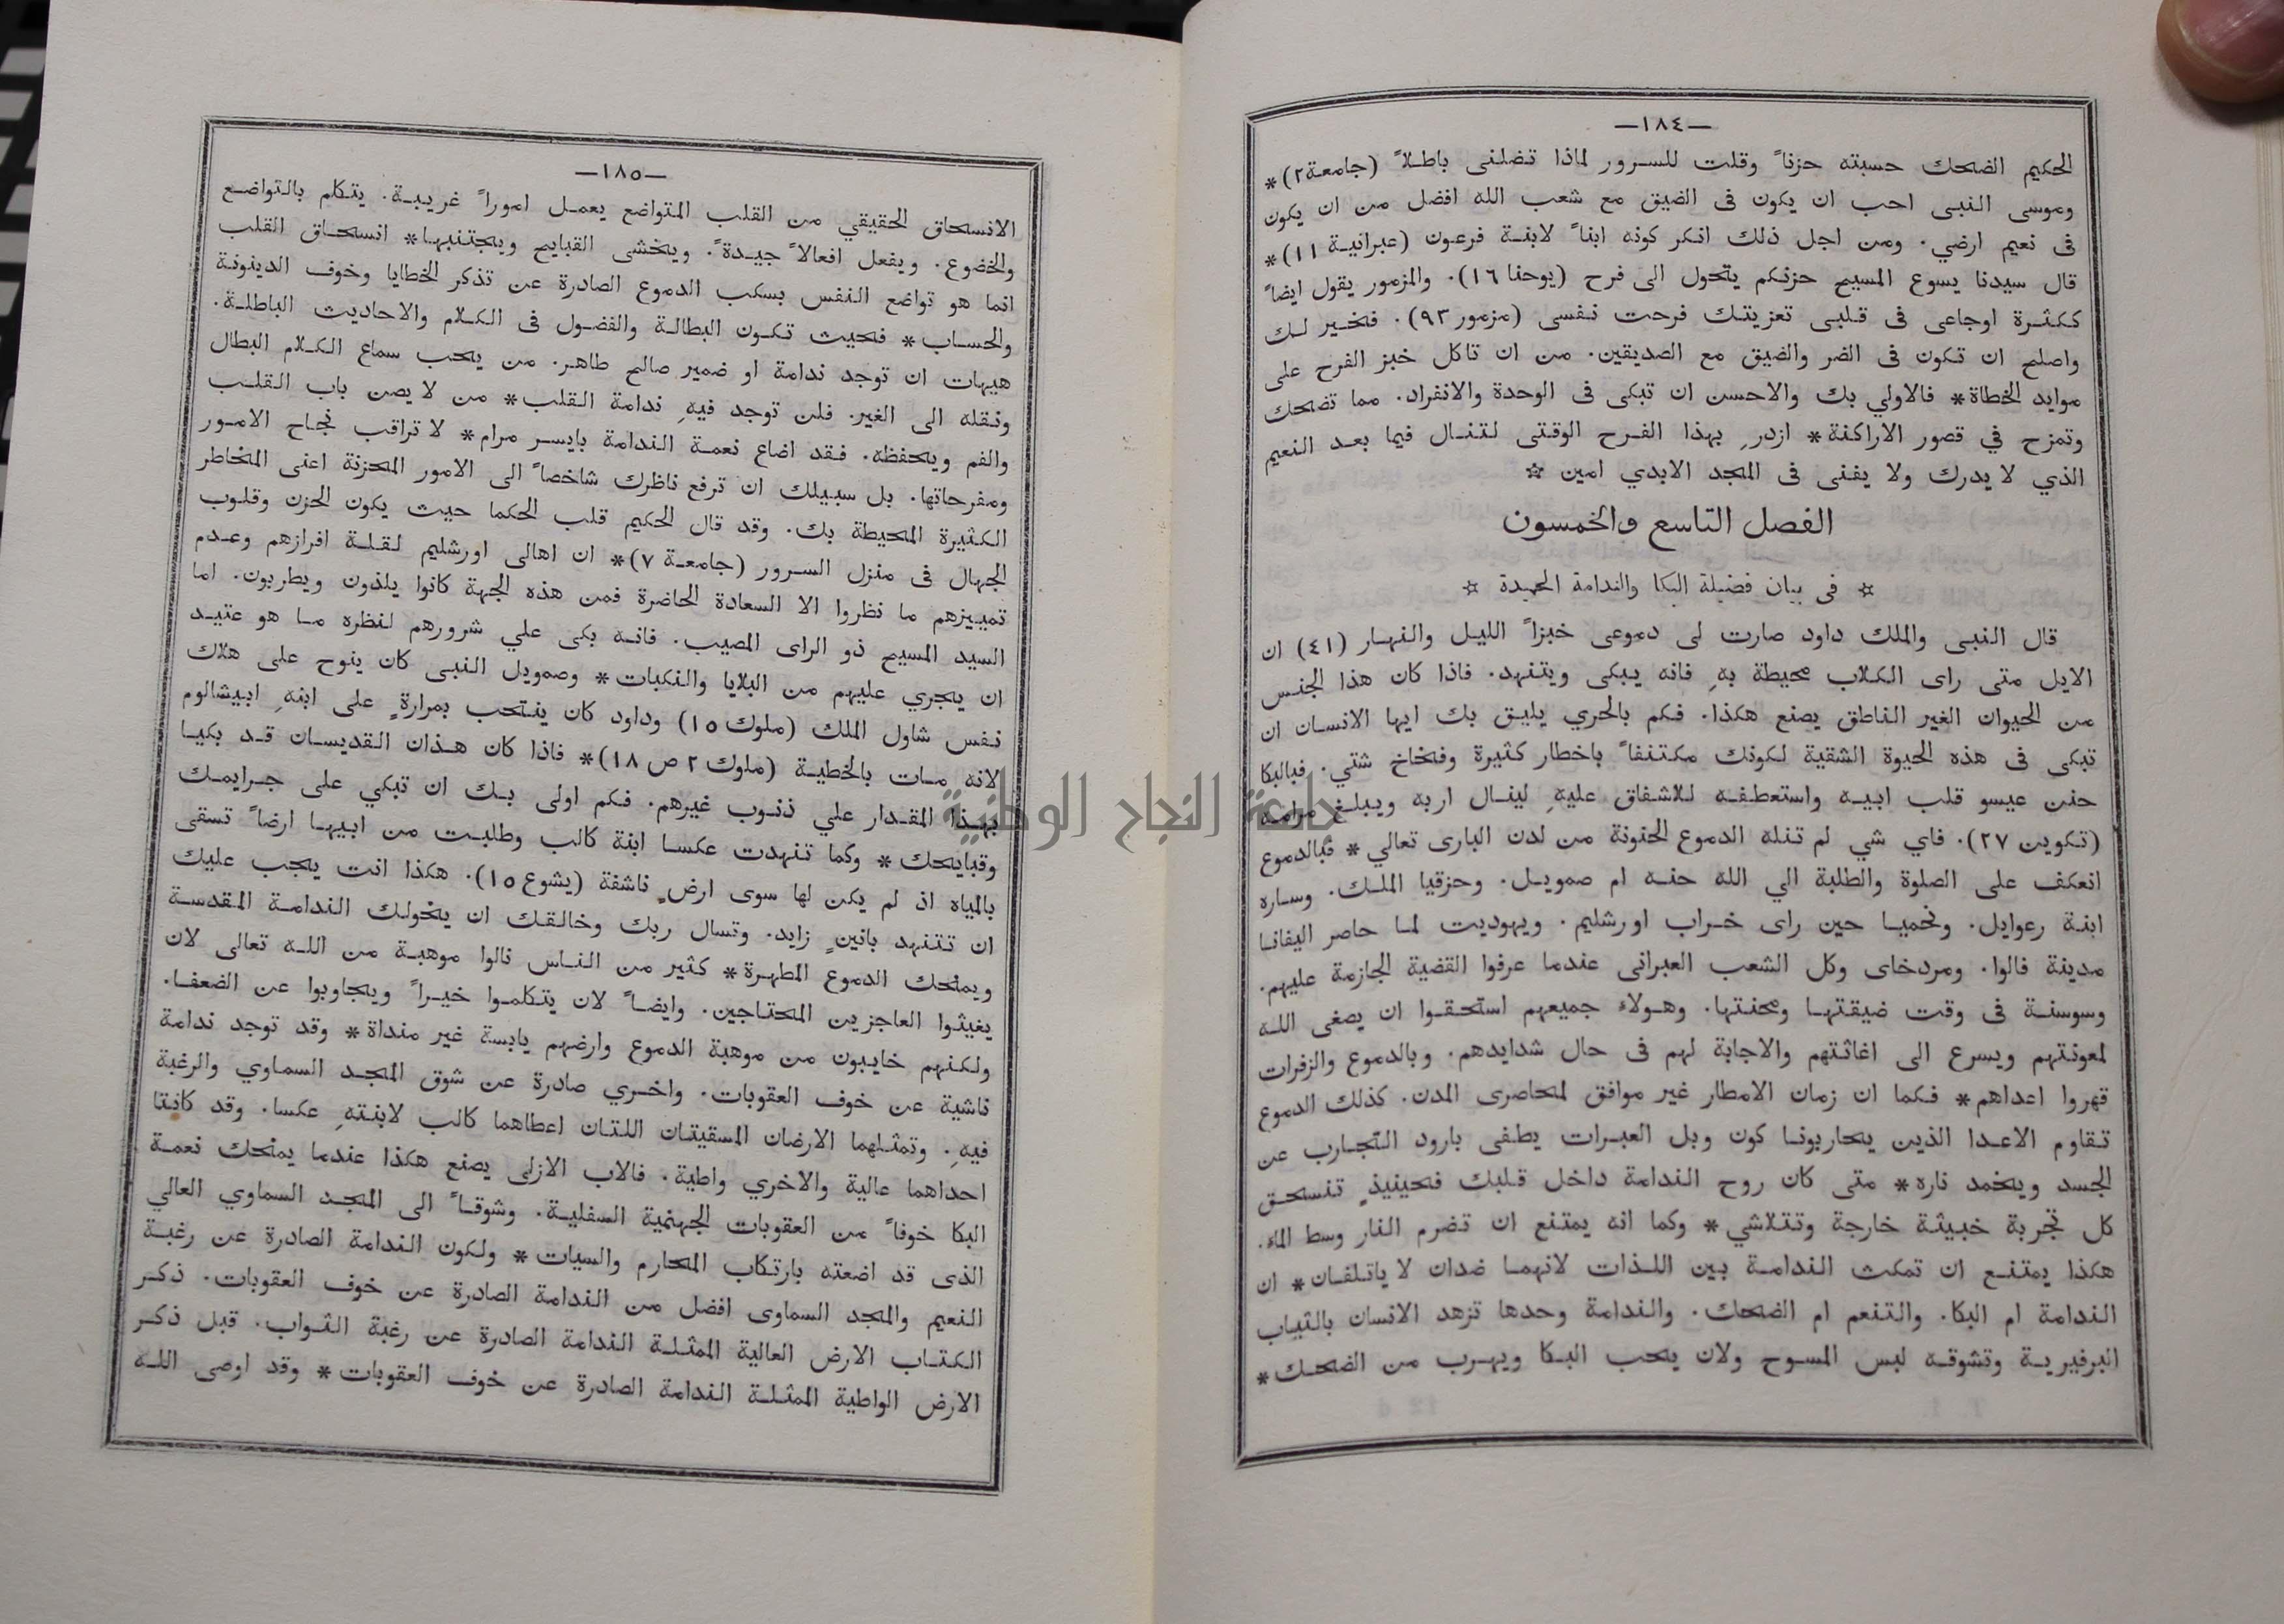 —١٨٤—
الحكيم الضحك حسبته حزناً وقلت للسرور لماذا تضلنى باطلاً (جامعة٢)*
وموسى النبى احب ان يكون فى الضيق مع شعب الله افضل من ان يكون
فى نعيم ارضي. ومن اجل ذلك انكر كونه ابناً لابنة فرعون (عبرانية ١١)*
قال سيدنا يسوع المسيح حزنكم يتحول الى فرح (يوحنا ١٦). والمزمور يقول ايضاً
ككثرة اوجاعى فى قلبى تعزيتك فرحت نفسى (مزمور٩٣). فخير لك
واصلح ان تكون فى الضر والضيق مع الصديقين. من ان تاكل خبز الفرح على
موايد الخطاة* فالاولي بك والاحسن ان تبكى فى الوحدة والانفراد. مما تضحك
وتمزح في قصور الاراكنة* ازدرِ بهذا الفرح الوقتى لتنال فيما بعد النعيم
الذي لا يدرك ولا يفنى فى المجد الابدي امين ☆
الفصل التاسع والخمسون
☆ فى بيان فضيلة البكا والندامة الحميدة ☆
قال النبى والملك داود صارت لى دموعى خبزاً الليل والنهار (٤١) ان
الايل متى راى الكلاب محيطة بهِ فانه يبكى ويتنهد. فاذا كان هذا الجنس
من الحيوان الغير الناطق يصنع هكذا. فكم بالحري يليق بك ايها الانسان ان
تبكى فى هذه الحيوة الشقية لكونك مكتنفاً باخطار كثيرة وفخاخ شتي. فبالبكا
حنن عيسو قلب ابيه واستعطفه للاشفاق عليهِ لينال اربه ويبلغ مرامه
(تكوين ٢٧). فاي شي لم تنله الدموع الحنونة من لدن البارى تعالي* فبالدموع
انعكف على الصلوة والطلبة الي الله حنه ام صمويل. وحزقيا الملك. وساره
ابنة رعوايل. ونحميا حين راى خراب اورشليم. ويهوديت لما حاصر اليفانا
مدينة فالوا. ومردخاى وكل الشعب العبرانى عندما عرفوا القضية الجازمة عليهم.
وسوسنة فى وقت ضيقتها ومحنتها. وهولاء جميعهم استحقوا ان يصغى الله
لمعونتهم ويسرع الى اغاثتهم والاجابة لهم فى حال شدايدهم. وبالدموع والزفرات
قهروا اعداهم* فكما ان زمان الامطار غير موافق لمحاصرى المدن. كذلك الدموع
تقاوم الاعدا الذين يحاربونا كون وبل العبرات يطفى بارود التجارب عن
الجسد ويخمد ناره* متى كان روح الندامة داخل قلبك فحينيذٍ تنسحق
كل تجربة خبيثة خارجة وتتلاشي* وكما انه يمتنع ان تضرم النار وسط الماء.
هكذا يمتنع ان تمكث الندامة بين اللذات لانهما ضدان لا ياتلفان* ان
الندامة ام البكا. والتنعم ام الضحك. والندامة وحدها تزهد الانسان بالثياب
البرفيرية وتشوقه لبس المسوح ولان يحب البكا ويهرب من الضحك*
—١٨٥—
الانسحاق الحقيقي من القلب المتواضع يعمل اموراً غريبة. يتكلم بالتواضع
والخضوع. ويفعل افعالاً جيدةً. ويخشى القبايح ويجتنبها* انسحاق القلب
انما هو تواضع النفس بسكب الدموع الصادرة عن تذكر الخطايا وخوف الدينونة
والحساب* فحيث تكون البطالة والفضول فى الكلام والاحاديث الباطلة.
هيهات ان توجد ندامة او ضمير صالح طاهر. من يحب سماع الكلام البطال
ونقله الى الغير. فلن توجد فيهِ ندامة القلب* من لا يصن باب القلب
والفم ويحفظه. فقد اضاع نعمة الندامة بايسر مرام* لا تراقب نجاح الامور
ومفرحاتها. بل سبيلك ان ترفع ناظرك شاخصاً الى الامور المحزنة اعنى المخاطر
الكثيرة المحيطة بك. وقد قال الحكيم قلب الحكما حيث يكون الحزن وقلوب
الجهال فى منزل السرور (جامعة ٧)* ان اهالى اورشليم لقلة افرازهم وعدم
تمييزهم ما نظروا الا السعادة الحاضرة فمن هذه الجهة كانوا يلذون ويطربون. اما
السيد المسيح ذو الراى المصيب. فانه بكى علي شرورهم لنظره ما هو عتيد
ان يجري عليهم من البلايا والنكبات* وصمويل النبى كان ينوح على هلاك
نفس شاول الملك (ملوك ١٥) وداود كان ينتحب بمرارةٍ على ابنهِ ابيشالوم
لانه مات بالخطية (ملوك ٢ ص ١٨)* فاذا كان هذان القديسان قد بكيا
بهذا المقدار علي ذنوب غيرهم. فكم اولى بك ان تبكي على جرايمك
وقبايحك* وكما تنهدت عكسا ابنة كالب وطلبت من ابيها ارضاً تسقى
بالمياه اذ لم يكن لها سوى ارضٍ ناشفة (يشوع ١٥). هكذا انت يجب عليك
ان تتنهد بانينٍ زايد. وتسال ربك وخالقك ان يخولك الندامة المقدسة
ويمنحك الدموع المطهرة* كثير من الناس نالوا موهبة من الله تعالى لان
يغيثوا العاجزين المحتاجين. وايضاً لان يتكلموا خيراً ويجاوبوا عن الضعفا.
ولكنهم خايبون من موهبة الدموع وارضهم يابسة غير منداة* وقد توجد ندامة
ناشية عن خوف العقوبات. واخري صادرة عن شوق المجد السماوي والرغبة
فيهِ. وتمثلهما الارضان المسقيتان اللتان اعطاهما كالب لابنتهِ عكسا. وقد كانتا
احداهما عالية والاخري واطية. فالاب الازلى يصنع هكذا عندما يمنحك نعمة
البكا خوفاً من العقوبات الجهنمية السفلية. وشوقاً الى المجد السماوي العالي
الذى قد اضعته بارتكاب المحارم والسيات* ولكون الندامة الصادرة عن رغبة
النعيم والمجد السماوى افضل من الندامة الصادرة عن خوف العقوبات. ذكر
الكتاب الارض العالية الممثلة الندامة الصادرة عن رغبة الثواب. قبل ذكر
الارض الواطية الممثلة الندامة الصادرة عن خوف العقوبات* وقد اوصى الله
جامعة النجاح الوطنية